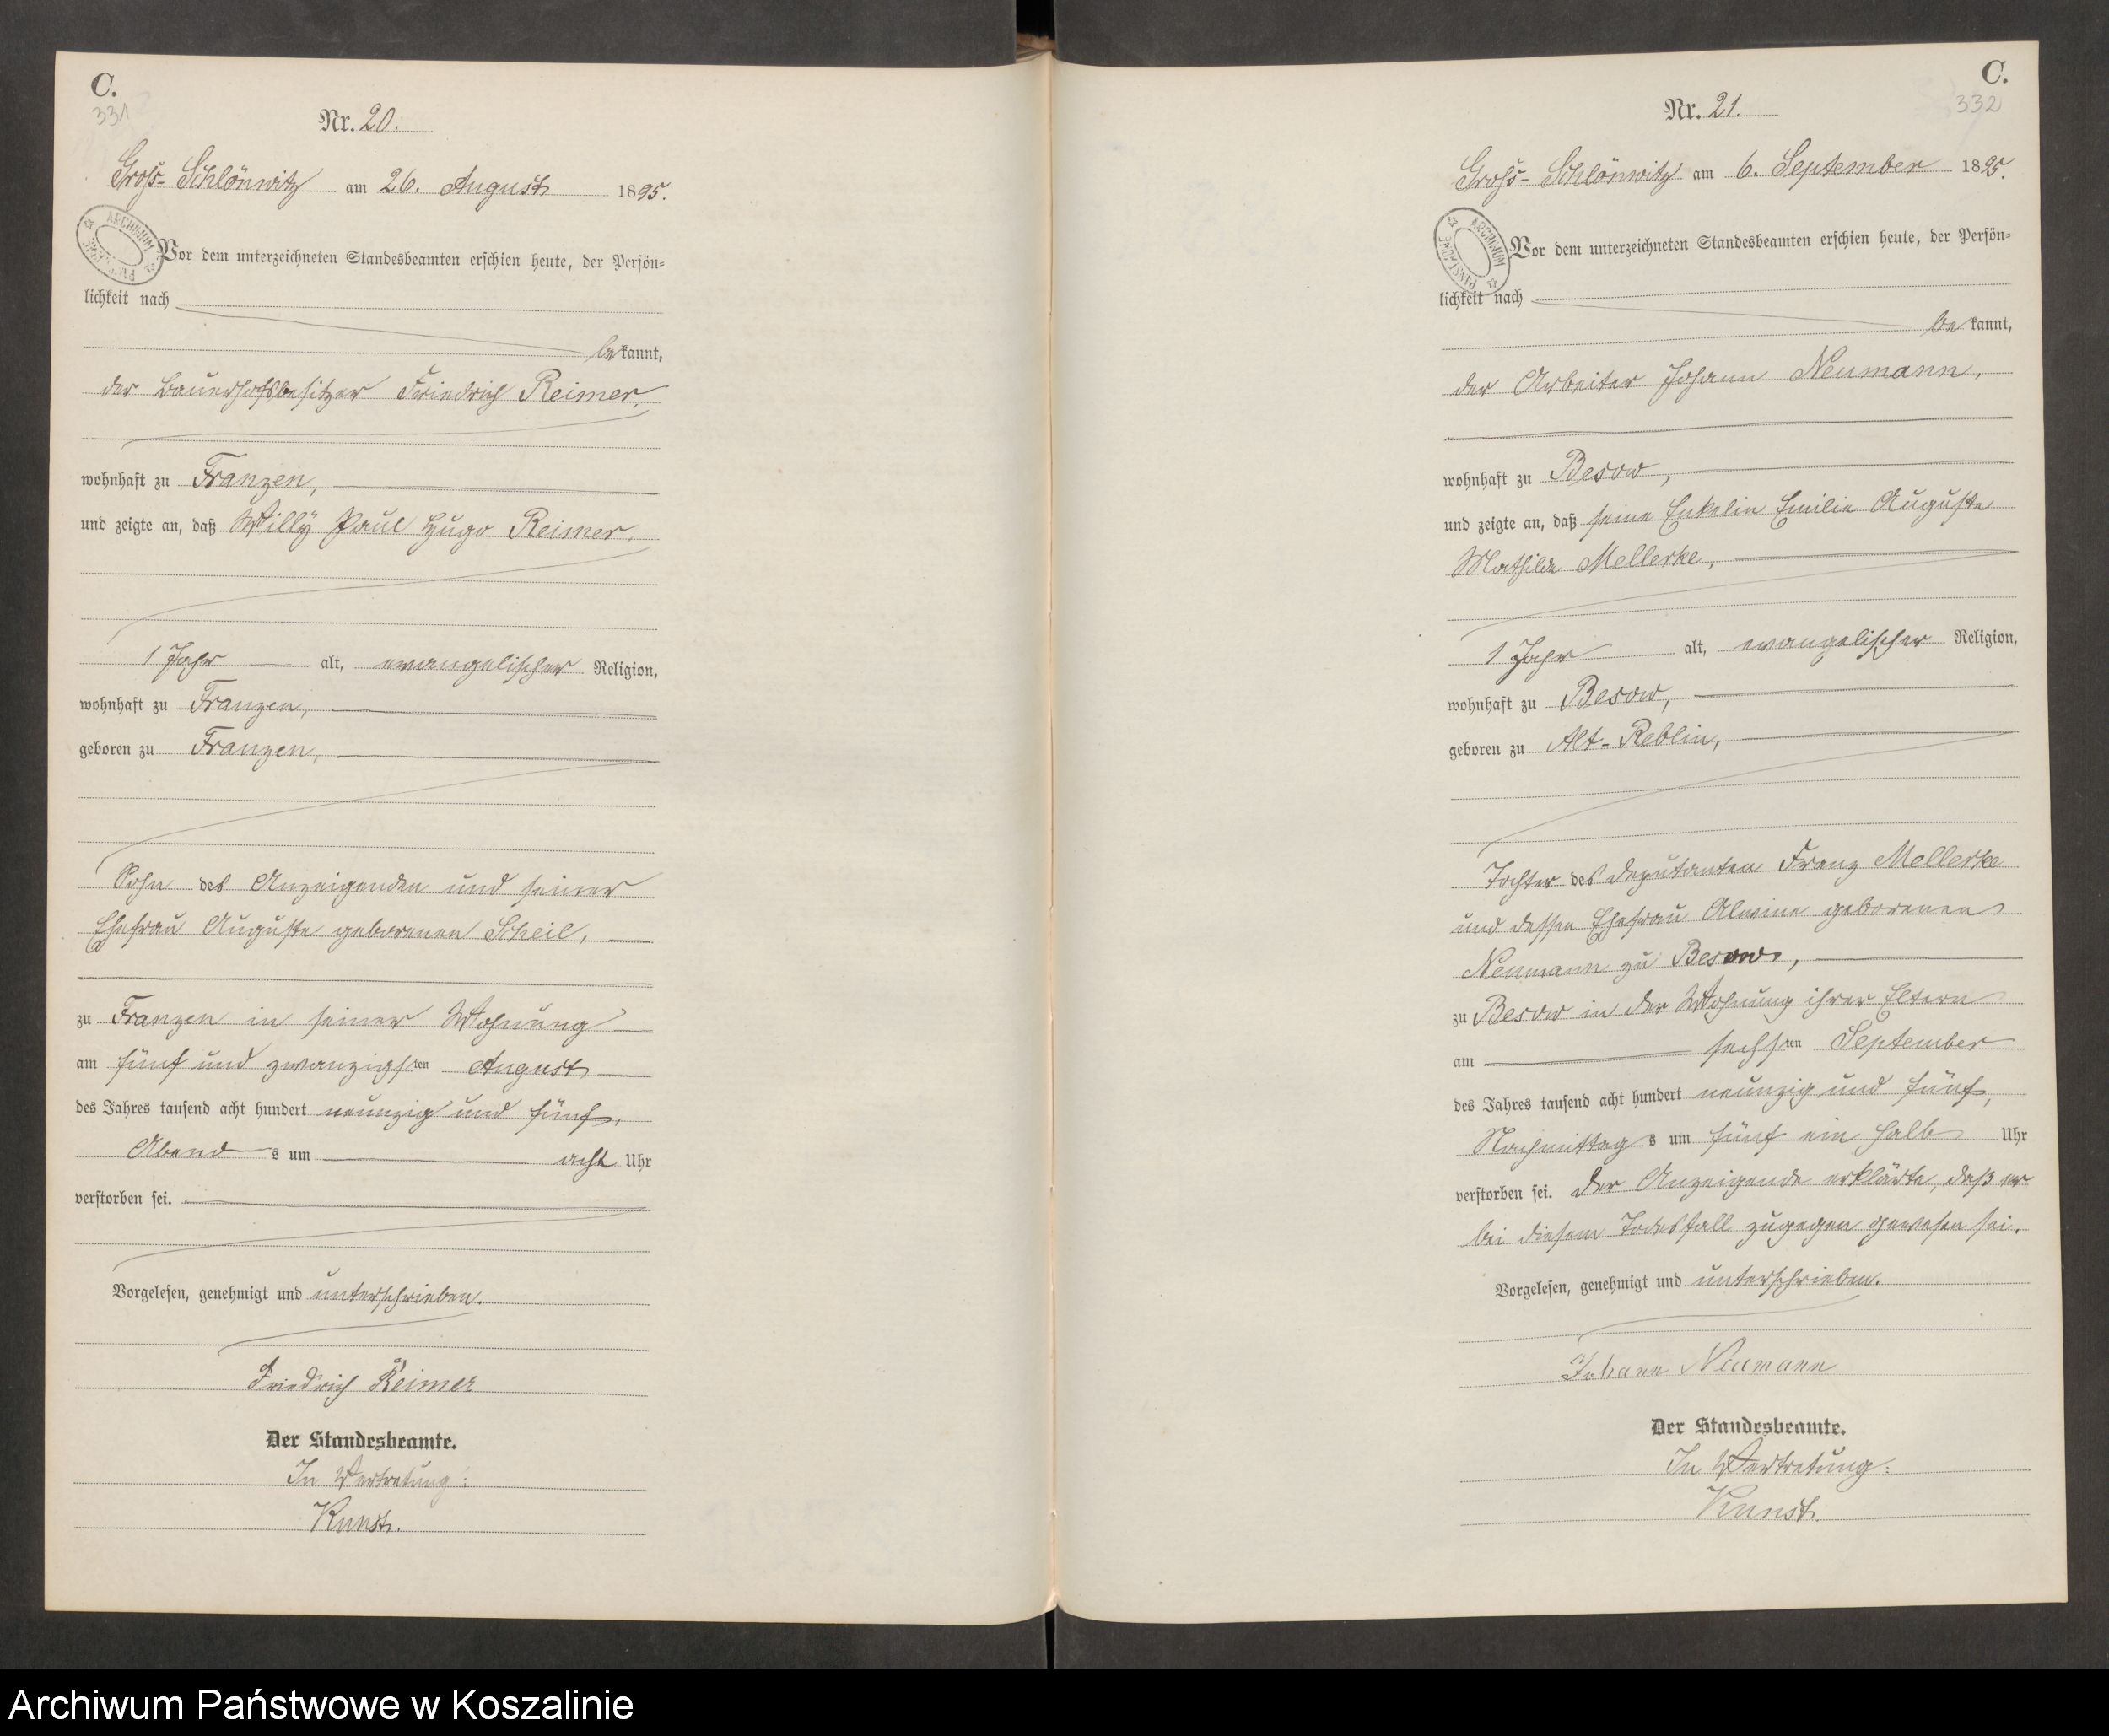 C.
331
Nr. 20.
Groß-Schlönwitz am 26. August 1895.
Vor dem unterzeichneten Standesbeamten erschien heute, der Persön-
lichkeit nach
bekannt,
der Bauerhofsbesitzer Friedrich Reimer,
wohnhaft zu Franzen,
und zeigte an, daß Willy Paul Hugo Reimer,
1 Jahr alt, evangelischer Religion,
wohnhaft zu Franzen,
geboren zu Franzen,
Sohn des Anzeigenden und seiner
Ehefrau Auguste geborenen Scheil,
zu Franzen in seiner Wohnung
am fünf und zwanzigsten August
des Jahres tausend acht hundert neunzig und fünf,
Abends um acht Uhr
verstorben sei.
Vorgelesen, genehmigt und unterschrieben.
Friedrich Reimer
Der Standesbeamte.
In Vertretung:
Kunst.
C.
332
Nr. 21.
Groß-Schlönwitz am 6. September 1895.
ARCHIWUM PAŃSTWOWE
Vor dem unterzeichneten Standesbeamten erschien heute, der Persön-
lichkeit nach
bekannt,
der Arbeiter Johann Neumann,
wohnhaft zu Besow,
und zeigte an, daß seine Enkelin Emilie Auguste
Mathilde Mellerke,
1 Jahr alt, evangelischer Religion,
wohnhaft zu Besow,
geboren zu Alt-Reblin,
Tochter des Deputanten Franz Mellerke
und dessen Ehefrau Alwine geborenen
Neumann zu Besow,
zu Besow in der Wohnung ihrer Eltern
am sechsten September
des Jahres tausend acht hundert neunzig und fünf,
Nachmittags um fünf ein halb Uhr
verstorben sei. Der Anzeigende erklärte, daß er
bei diesem Todesfall zugegen gewesen sei.
Vorgelesen, genehmigt und unterschrieben.
Johann Neumann
Der Standesbeamte.
In Vertretung:
Kunst.
Archiwum Państwowe w Koszalinie